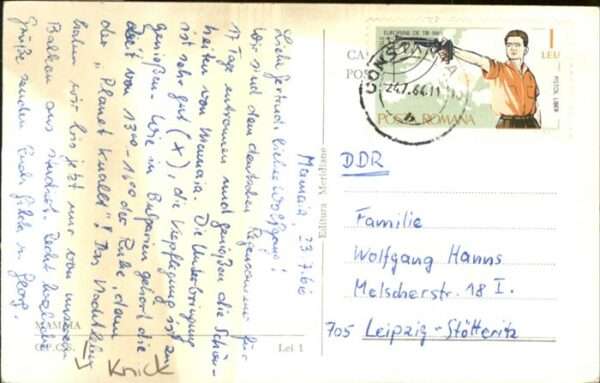 Mamaia, 23.7.66
Liebe Gertrud, lieber Wolfgang!
Wir sind dem deutschen Regensommer für
17 Tage entronnen und genießen die Schön-
heiten von Mamaia. Die Unterbringung
ist sehr gut (X), die Verpflegung ist zu
genießen. Wie in Bulgarien gehört die
Zeit von 13⁰⁰-16⁰⁰ der Ruhe, denn
der "Planet knallt"! Das Nachtleben
haben wir bis jetzt nur von unserem
Balkon aus studiert. Recht herzliche
Grüße senden Euch u. Georg.
Knick
MAMAIA
Lei 1
Editura Meridiane
CA
POS
EUROPENE DE TIR
1 LEU
PISTOL LIBER
POSTA ROMANA
CONSTANTA
24.7.66.11
DDR
Familie
Wolfgang Hanns
Melscherstr. 18 I.
705 Leipzig-Stötteritz